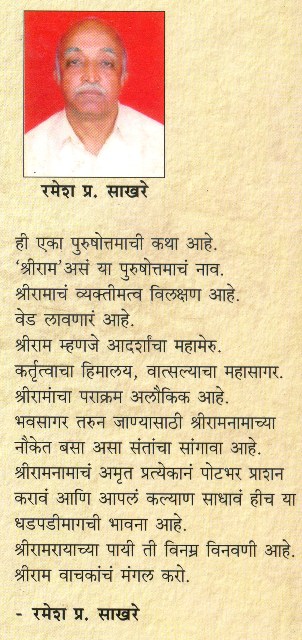 रमेश प्र. साखरे
ही एका पुरुषोत्तमाची कथा आहे.
‘श्रीराम’असं या पुरुषोत्तमाचं नाव.
श्रीरामाचं व्यक्तीमत्व विलक्षण आहे.
वेड लावणारं आहे.
श्रीराम म्हणजे आदर्शांचा महामेरु.
कर्तृत्वाचा हिमालय, वात्सल्याचा महासागर.
श्रीरामांचा पराक्रम अलौकिक आहे.
भवसागर तरुन जाण्यासाठी श्रीरामनामाच्या
नौकेत बसा असा संतांचा सांगावा आहे.
श्रीरामनामाचं अमृत प्रत्येकानं पोटभर प्राशन
करावं आणि आपलं कल्याण साधावं हीच या
धडपडीमागची भावना आहे.
श्रीरामरायाच्या पायी ती विनम्र विनवणी आहे.
श्रीराम वाचकांचं मंगल करो.
- रमेश प्र. साखरे